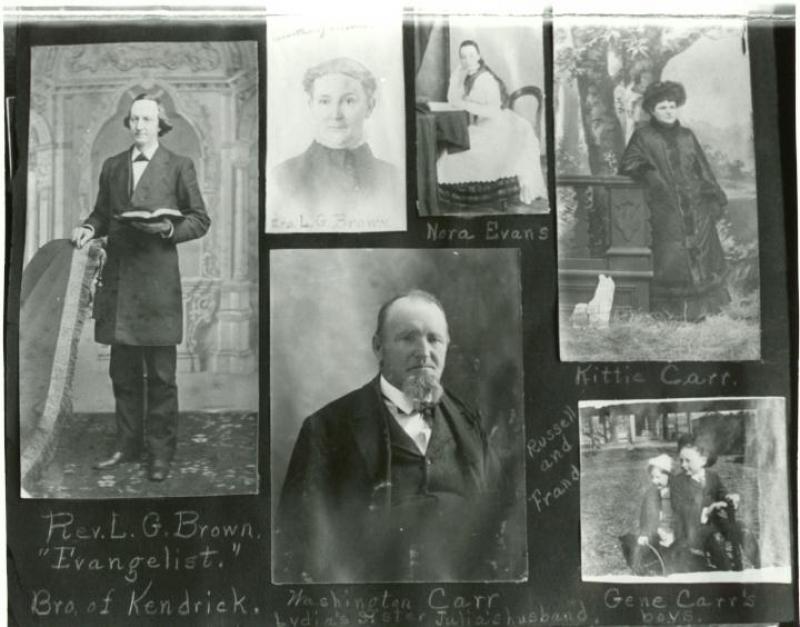 L. G. Brown
Nora Evans
Kittie Carr.
Russell
and
Frand
Rev. L. G. Brown.
"Evangelist."
Bro. of Kendrick.
Washington Carr
Lydia's sister Julia's husband.
Gene Carr's
boys.